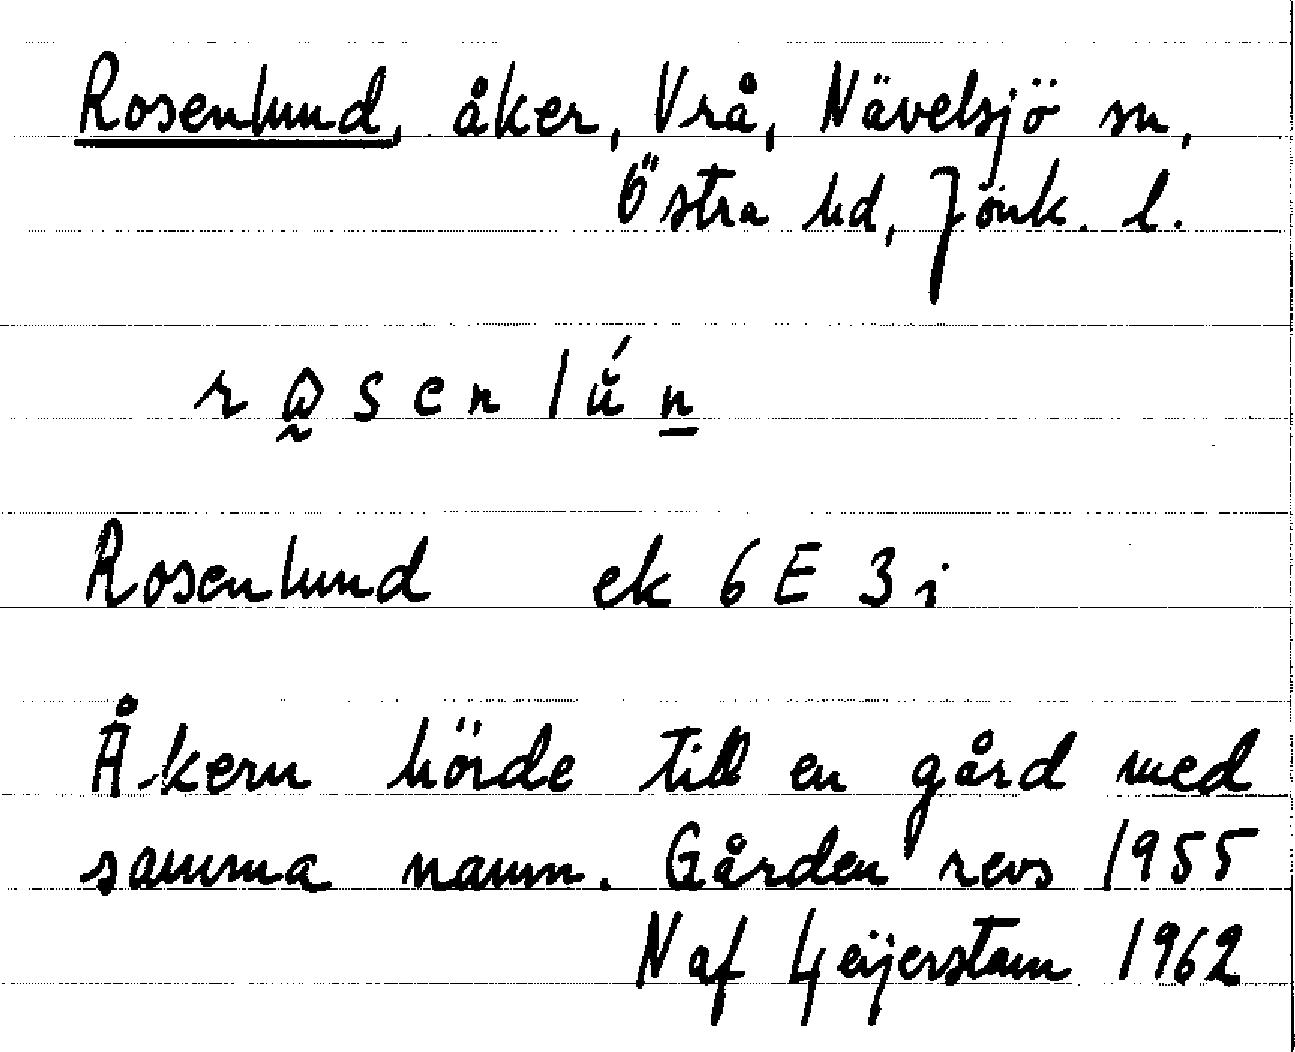 Rosenlund, åker, Vrå, Nävelsjö sn,
Östra hd, Jönk. l.
rosenlún
Rosenlund ek 6 E 3 i
Åkern hörde till en gård med
samma namn. Gården revs 1955
N af Geijerstam 1962